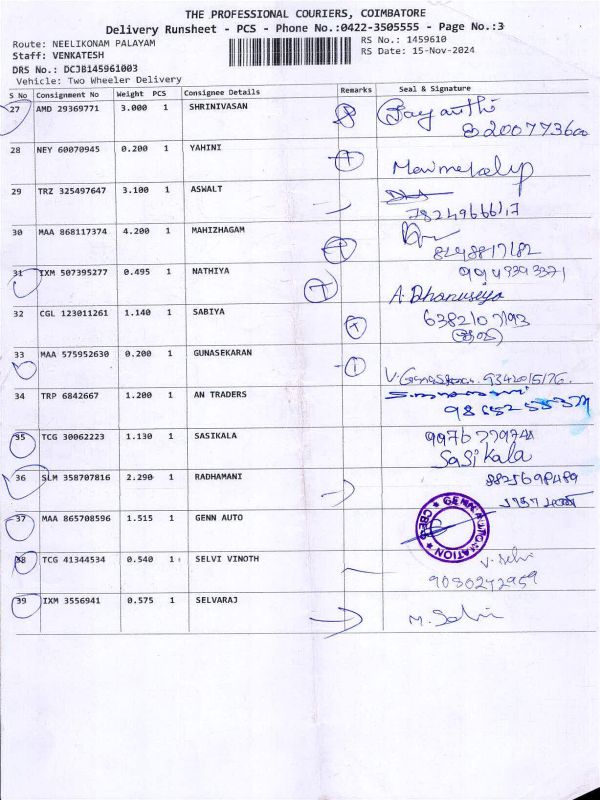 THE PROFESSIONAL COURIERS, COIMBATORE
Delivery Runsheet - PCS - Phone No.:0422-3505555 - Page No.:3
Route: NEELIKONAM PALAYAM
RS No.: 1459610
Staff: VENKATESH
RS Date: 15-Nov-2024
DRS No.: DCJB145961003
Vehicle: Two Wheeler Delivery
S No Consignment No Weight PCS Consignee Details Remarks Seal & Signature
27 AMD 29369771 3.000 1 SHRINIVASAN
8200773600
28 NEY 60070945 0.200 1 YAHINI
29 TRZ 325497647 3.100 1 ASWALT
30 MAA 868117374 4.200 1 MAHIZHAGAM
31 IXM 507395277 0.495 1 NATHIYA
A. Dhanuseiya
32 CGL 123011261 1.140 1 SABIYA
33 MAA 575952630 0.200 1 GUNASEKARAN
34 TRP 6842667 1.200 1 AN TRADERS
35 TCG 30062223 1.130 1 SASIKALA
Sasikala
36 SLM 358707816 2.290 1 RADHAMANI
37 MAA 865708596 1.515 1 GENN AUTO
GENN AUTOMATION
38 TCG 41344534 0.540 1 SELVI VINOTH
V. Selvi
9080272959
39 IXM 3556941 0.575 1 SELVARAJ